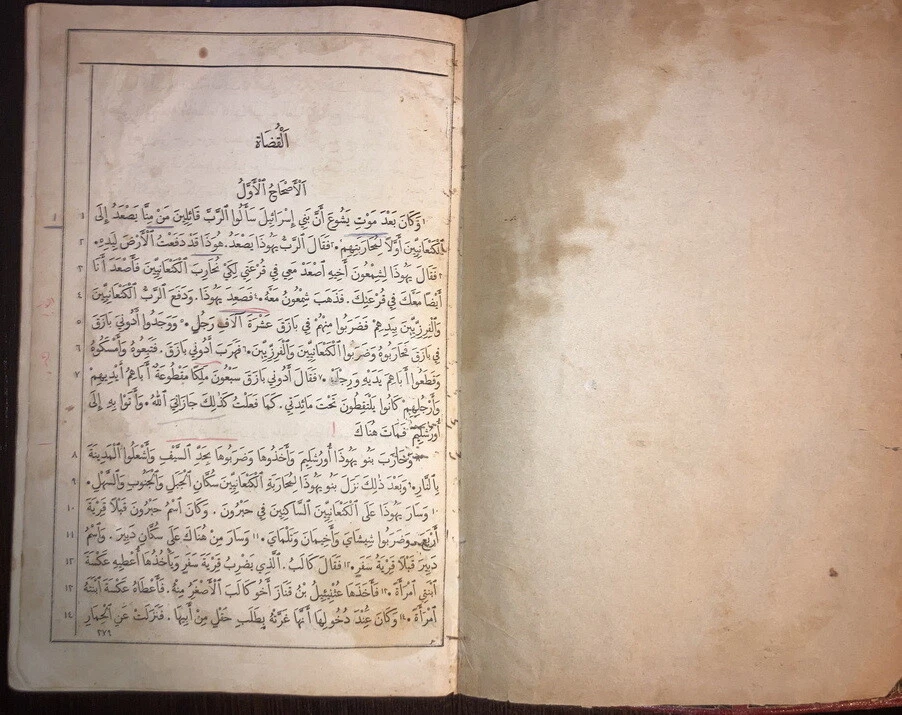 اَلْقُضَاة
اَلْأَصْحَاحُ ٱلْأَوَّلُ
١وَكَانَ بَعْدَ مَوْتِ يَشُوعَ أَنَّ بَنِي إِسْرَائِيلَ سَأَلُوا ٱلرَّبَّ قَائِلِينَ مَنْ مِنَّا يَصْعَدُ إِلَى ١
ٱلْكَنْعَانِيِّينَ أَوَّلًا لِمُحَارَبَتِهِمْ. ٢فَقَالَ ٱلرَّبُّ يَهُوذَا يَصْعَدُ. هُوَذَا قَدْ دَفَعْتُ ٱلْأَرْضَ لِيَدِهِ. ٢
٣فَقَالَ يَهُوذَا لِشِمْعُونَ أَخِيهِ ٱصْعَدْ مَعِي فِي قُرْعَتِي لِكَيْ نُحَارِبَ ٱلْكَنْعَانِيِّينَ فَأَصْعَدَ أَنَا ٣
أَيْضًا مَعَكَ فِي قُرْعَتِكَ. فَذَهَبَ شِمْعُونُ مَعَهُ. ٤فَصَعِدَ يَهُوذَا. وَدَفَعَ ٱلرَّبُّ ٱلْكَنْعَانِيِّينَ ٤
وَٱلْفِرِزِّيِّينَ بِيَدِهِمْ فَضَرَبُوا مِنْهُمْ فِي بَازَقَ عَشْرَةَ آلَافِ رَجُلٍ. ٥وَوَجَدُوا أَدُونِيَ بَازَقَ ٥
فِي بَازَقَ فَحَارَبُوهُ وَضَرَبُوا ٱلْكَنْعَانِيِّينَ وَٱلْفِرِزِّيِّينَ. ٦فَهَرَبَ أَدُونِي بَازَقَ. فَتَبِعُوهُ وَأَمْسَكُوهُ ٦
وَقَطَعُوا أَبَاهِمَ يَدَيْهِ وَرِجْلَيْهِ. ٧فَقَالَ أَدُونِي بَازَقَ سَبْعُونَ مَلِكًا مَقْطُوعَةٌ أَبَاهِمُ أَيْدِيهِمْ ٧
وَأَرْجُلِهِمْ كَانُوا يَلْتَقِطُونَ تَحْتَ مَائِدَتِي. كَمَا فَعَلْتُ كَذٰلِكَ جَازَانِيَ ٱللهُ. وَأَتَوْا بِهِ إِلَى
أُورُشَلِيمَ فَمَاتَ هُنَاكَ
٨وَحَارَبَ بَنُو يَهُوذَا أُورُشَلِيمَ وَأَخَذُوهَا وَضَرَبُوهَا بِحَدِّ ٱلسَّيْفِ وَأَشْعَلُوا ٱلْمَدِينَةَ ٨
بِٱلنَّارِ. ٩وَبَعْدَ ذٰلِكَ نَزَلَ بَنُو يَهُوذَا لِمُحَارَبَةِ ٱلْكَنْعَانِيِّينَ سُكَّانِ ٱلْجَبَلِ وَٱلْجَنُوبِ وَٱلسَّهْلِ. ٩
١٠وَسَارَ يَهُوذَا عَلَى ٱلْكَنْعَانِيِّينَ ٱلسَّاكِنِينَ فِي حَبْرُونَ. وَكَانَ ٱسْمُ حَبْرُونَ قَبْلًا قَرْيَةَ ١٠
أَرْبَعَ. وَضَرَبُوا شِيشَايَ وَأَخِيمَانَ وَتَلْمَايَ. ١١وَسَارَ مِنْ هُنَاكَ عَلَى سُكَّانِ دَبِيرَ. وَٱسْمُ ١١
دَبِيرَ قَبْلًا قَرْيَةُ سَفَرٍ. ١٢فَقَالَ كَالَبُ. ٱلَّذِي يَضْرِبُ قَرْيَةَ سَفَرٍ وَيَأْخُذُهَا أُعْطِيهِ عَكْسَةَ ١٢
ٱبْنَتِي ٱمْرَأَةً. ١٣فَأَخَذَهَا عُثْنِيئِيلُ بْنُ قَنَازَ أَخُو كَالَبَ ٱلْأَصْغَرُ مِنْهُ. فَأَعْطَاهُ عَكْسَةَ ٱبْنَتَهُ ١٣
ٱمْرَأَةً. ١٤وَكَانَ عِنْدَ دُخُولِهَا أَنَّهَا غَرَّتْهُ بِطَلَبِ حَقْلٍ مِنْ أَبِيهَا. فَنَزَلَتْ عَنِ ٱلْحِمَارِ ١٤
٣٧٩